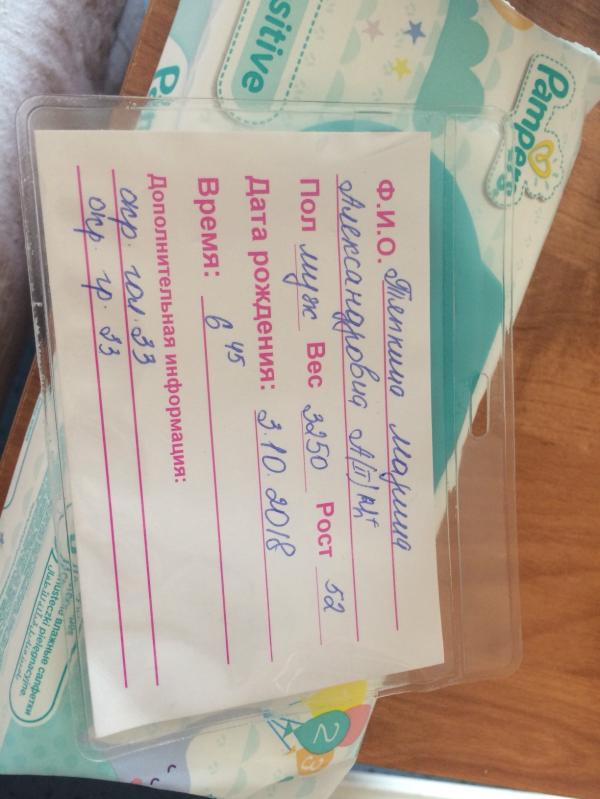 Ф.И.О. Тепкина Марина
Александровна А(II) Rh+
Пол муж Вес 3250 Рост 52
Дата рождения: 3.10.2018
Время: 6 45
Дополнительная информация:
окр. гол. 33
окр. гр. 33
Pampers
sensitive
Pam
влажные салфетки
2
3